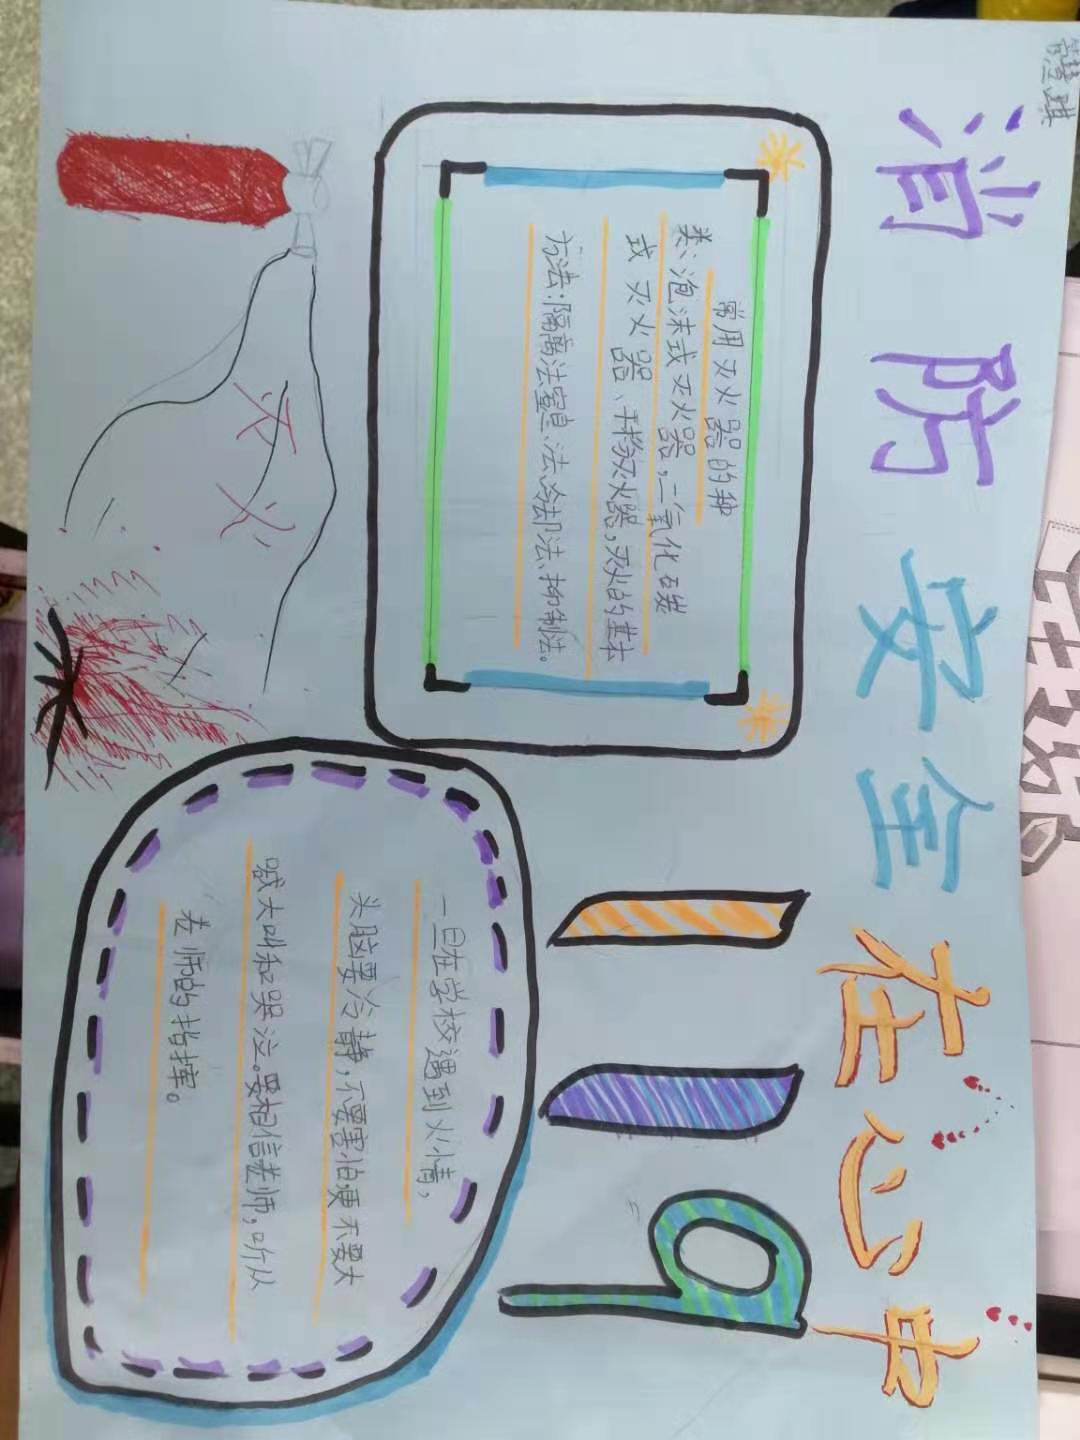 消防安全在心中
常用灭火器的种
类:泡沫式灭火器,二氧化碳
式灭火器、干粉灭火器,灭火的基本
方法:隔离法窒息法、冷却法、抑制法。
灭火
119
一旦在学校遇到火情,
头脑要冷静,不要害怕更不要大
喊大叫和哭泣。要相信老师,听从
老师的指挥。